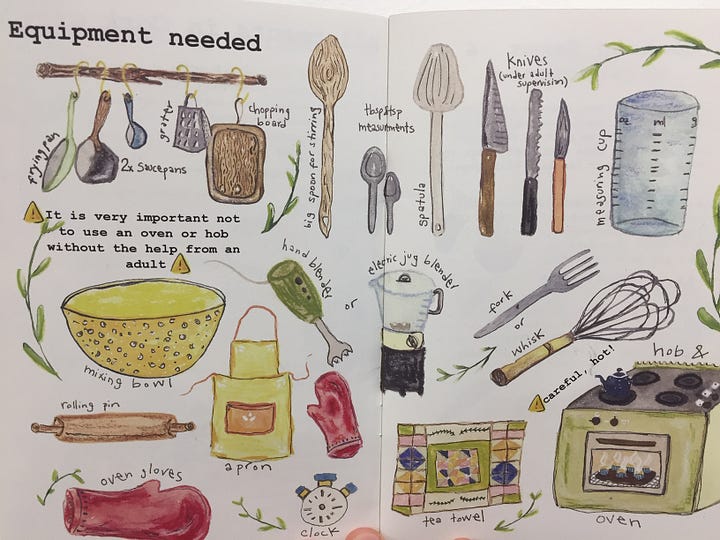 Equipment needed
frying pan
2x Saucepans
grater
chopping
board
big spoon for stirring
tbsp/tsp
measurments
spatula
Knives
(under adult
supervision)
measuring cup
oz ml g
⚠ It is very important not
to use an oven or hob
without the help from an
adult ⚠
mixing bowl
hand blender
or
electric jug blender
fork
or
whisk
⚠ careful, hot!
hob &
rolling pin
apron
oven gloves
clock
tea towel
oven